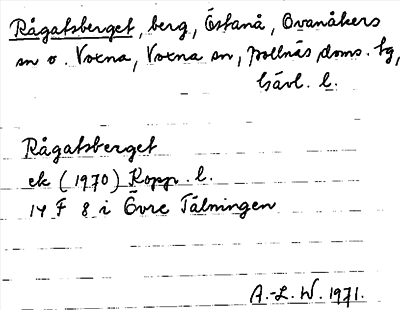 Rågatsberget, berg, Östanå, Ovanåkers
sn o. Voxna, Voxna sn, Bollnäs doms. tg,
Gävl. l.
Rågatsberget
ek (1970) Kopp. l.
14 F 8 i Övre Tälningen
A.-L. W. 1971.